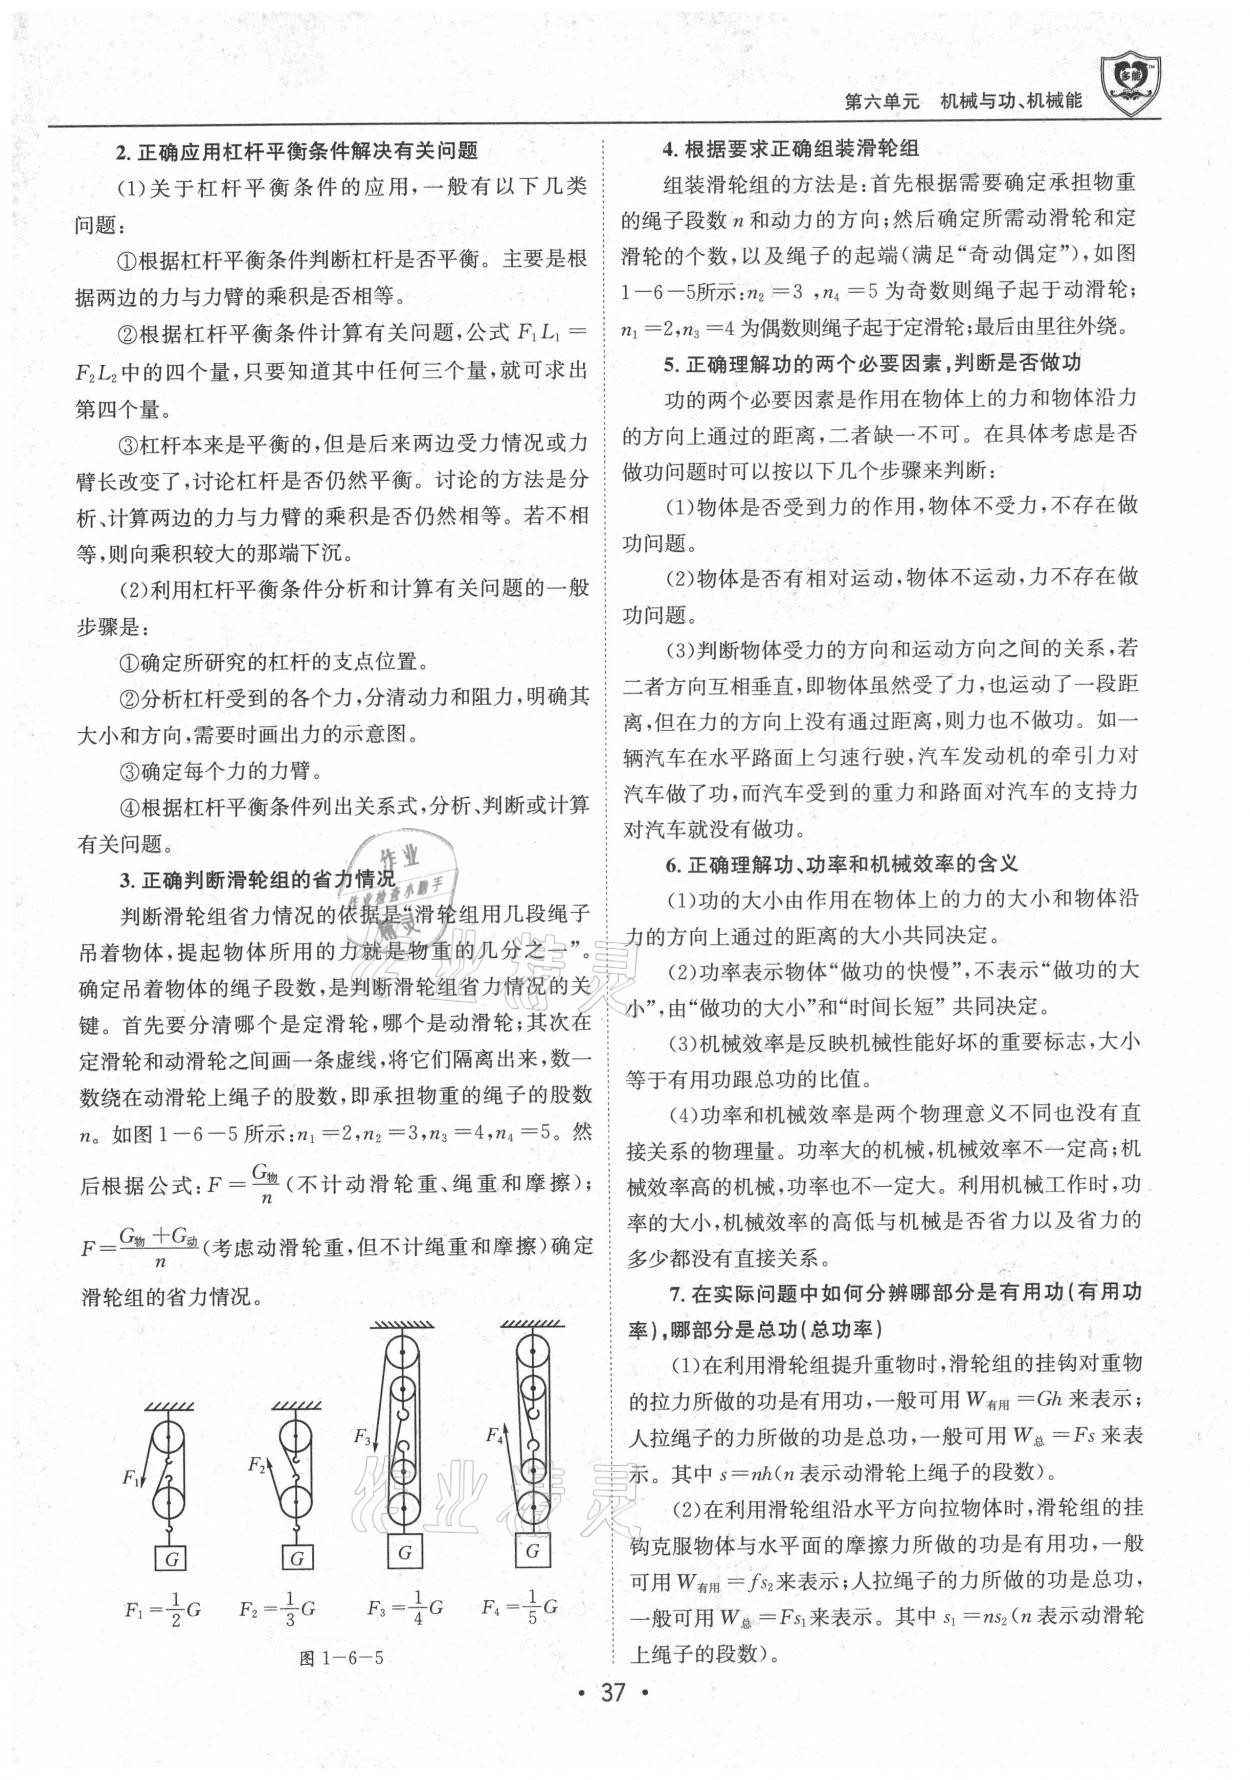 第六单元 机械与功、机械能
多能
2. 正确应用杠杆平衡条件解决有关问题
(1)关于杠杆平衡条件的应用,一般有以下几类
问题:
①根据杠杆平衡条件判断杠杆是否平衡。主要是根
据两边的力与力臂的乘积是否相等。
②根据杠杆平衡条件计算有关问题,公式 F₁L₁=
F₂L₂中的四个量,只要知道其中任何三个量,就可求出
第四个量。
③杠杆本来是平衡的,但是后来两边受力情况或力
臂长改变了,讨论杠杆是否仍然平衡。讨论的方法是分
析、计算两边的力与力臂的乘积是否仍然相等。若不相
等,则向乘积较大的那端下沉。
(2)利用杠杆平衡条件分析和计算有关问题的一般
步骤是:
①确定所研究的杠杆的支点位置。
②分析杠杆受到的各个力,分清动力和阻力,明确其
大小和方向,需要时画出力的示意图。
③确定每个力的力臂。
④根据杠杆平衡条件列出关系式,分析、判断或计算
有关问题。
3. 正确判断滑轮组的省力情况
判断滑轮组省力情况的依据是“滑轮组用几段绳子
吊着物体,提起物体所用的力就是物重的几分之一”。
确定吊着物体的绳子段数,是判断滑轮组省力情况的关
键。首先要分清哪个是定滑轮,哪个是动滑轮;其次在
定滑轮和动滑轮之间画一条虚线,将它们隔离出来,数一
数绕在动滑轮上绳子的股数,即承担物重的绳子的股数
n。如图1-6-5所示:n₁=2,n₂=3,n₃=4,n₄=5。然
后根据公式:F=G物/n(不计动滑轮重、绳重和摩擦);
F=(G物+G动)/n(考虑动滑轮重,但不计绳重和摩擦)确定
滑轮组的省力情况。
F₁ F₂ F₃ F₄
G G G G
F₁=1/2G F₂=1/3G F₃=1/4G F₄=1/5G
图 1-6-5
4. 根据要求正确组装滑轮组
组装滑轮组的方法是:首先根据需要确定承担物重
的绳子段数 n 和动力的方向;然后确定所需动滑轮和定
滑轮的个数,以及绳子的起端(满足“奇动偶定”),如图
1-6-5所示:n₂=3,n₄=5 为奇数则绳子起于动滑轮;
n₁=2,n₃=4为偶数则绳子起于定滑轮;最后由里往外绕。
5. 正确理解功的两个必要因素,判断是否做功
功的两个必要因素是作用在物体上的力和物体沿力
的方向上通过的距离,二者缺一不可。在具体考虑是否
做功问题时可以按以下几个步骤来判断:
(1)物体是否受到力的作用,物体不受力,不存在做
功问题。
(2)物体是否有相对运动,物体不运动,力不存在做
功问题。
(3)判断物体受力的方向和运动方向之间的关系,若
二者方向互相垂直,即物体虽然受了力,也运动了一段距
离,但在力的方向上没有通过距离,则力也不做功。如一
辆汽车在水平路面上匀速行驶,汽车发动机的牵引力对
汽车做了功,而汽车受到的重力和路面对汽车的支持力
对汽车就没有做功。
6. 正确理解功、功率和机械效率的含义
(1)功的大小由作用在物体上的力的大小和物体沿
力的方向上通过的距离的大小共同决定。
(2)功率表示物体“做功的快慢”,不表示“做功的大
小”,由“做功的大小”和“时间长短” 共同决定。
(3)机械效率是反映机械性能好坏的重要标志,大小
等于有用功跟总功的比值。
(4)功率和机械效率是两个物理意义不同也没有直
接关系的物理量。功率大的机械,机械效率不一定高;机
械效率高的机械,功率也不一定大。利用机械工作时,功
率的大小,机械效率的高低与机械是否省力以及省力的
多少都没有直接关系。
7. 在实际问题中如何分辨哪部分是有用功(有用功
率),哪部分是总功(总功率)
(1)在利用滑轮组提升重物时,滑轮组的挂钩对重物
的拉力所做的功是有用功,一般可用 W有用=Gh 来表示;
人拉绳子的力所做的功是总功,一般可用 W总=Fs 来表
示。其中 s=nh(n 表示动滑轮上绳子的段数)。
(2)在利用滑轮组沿水平方向拉物体时,滑轮组的挂
钩克服物体与水平面的摩擦力所做的功是有用功,一般
可用W有用=fs₂来表示;人拉绳子的力所做的功是总功,
一般可用W总=Fs₁来表示。其中 s₁=ns₂(n 表示动滑轮
上绳子的段数)。
·37·
作业
作业检查小助手
精灵
作业精灵
作业精灵